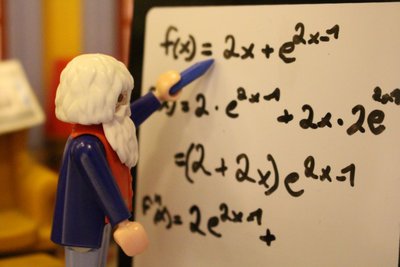 f(x) = 2x + e^2x-1
x) = 2 · e^2x-1 + 2x · 2e^2x
= (2 + 2x) e^2x-1
f"(x) = 2e^2x-1 +